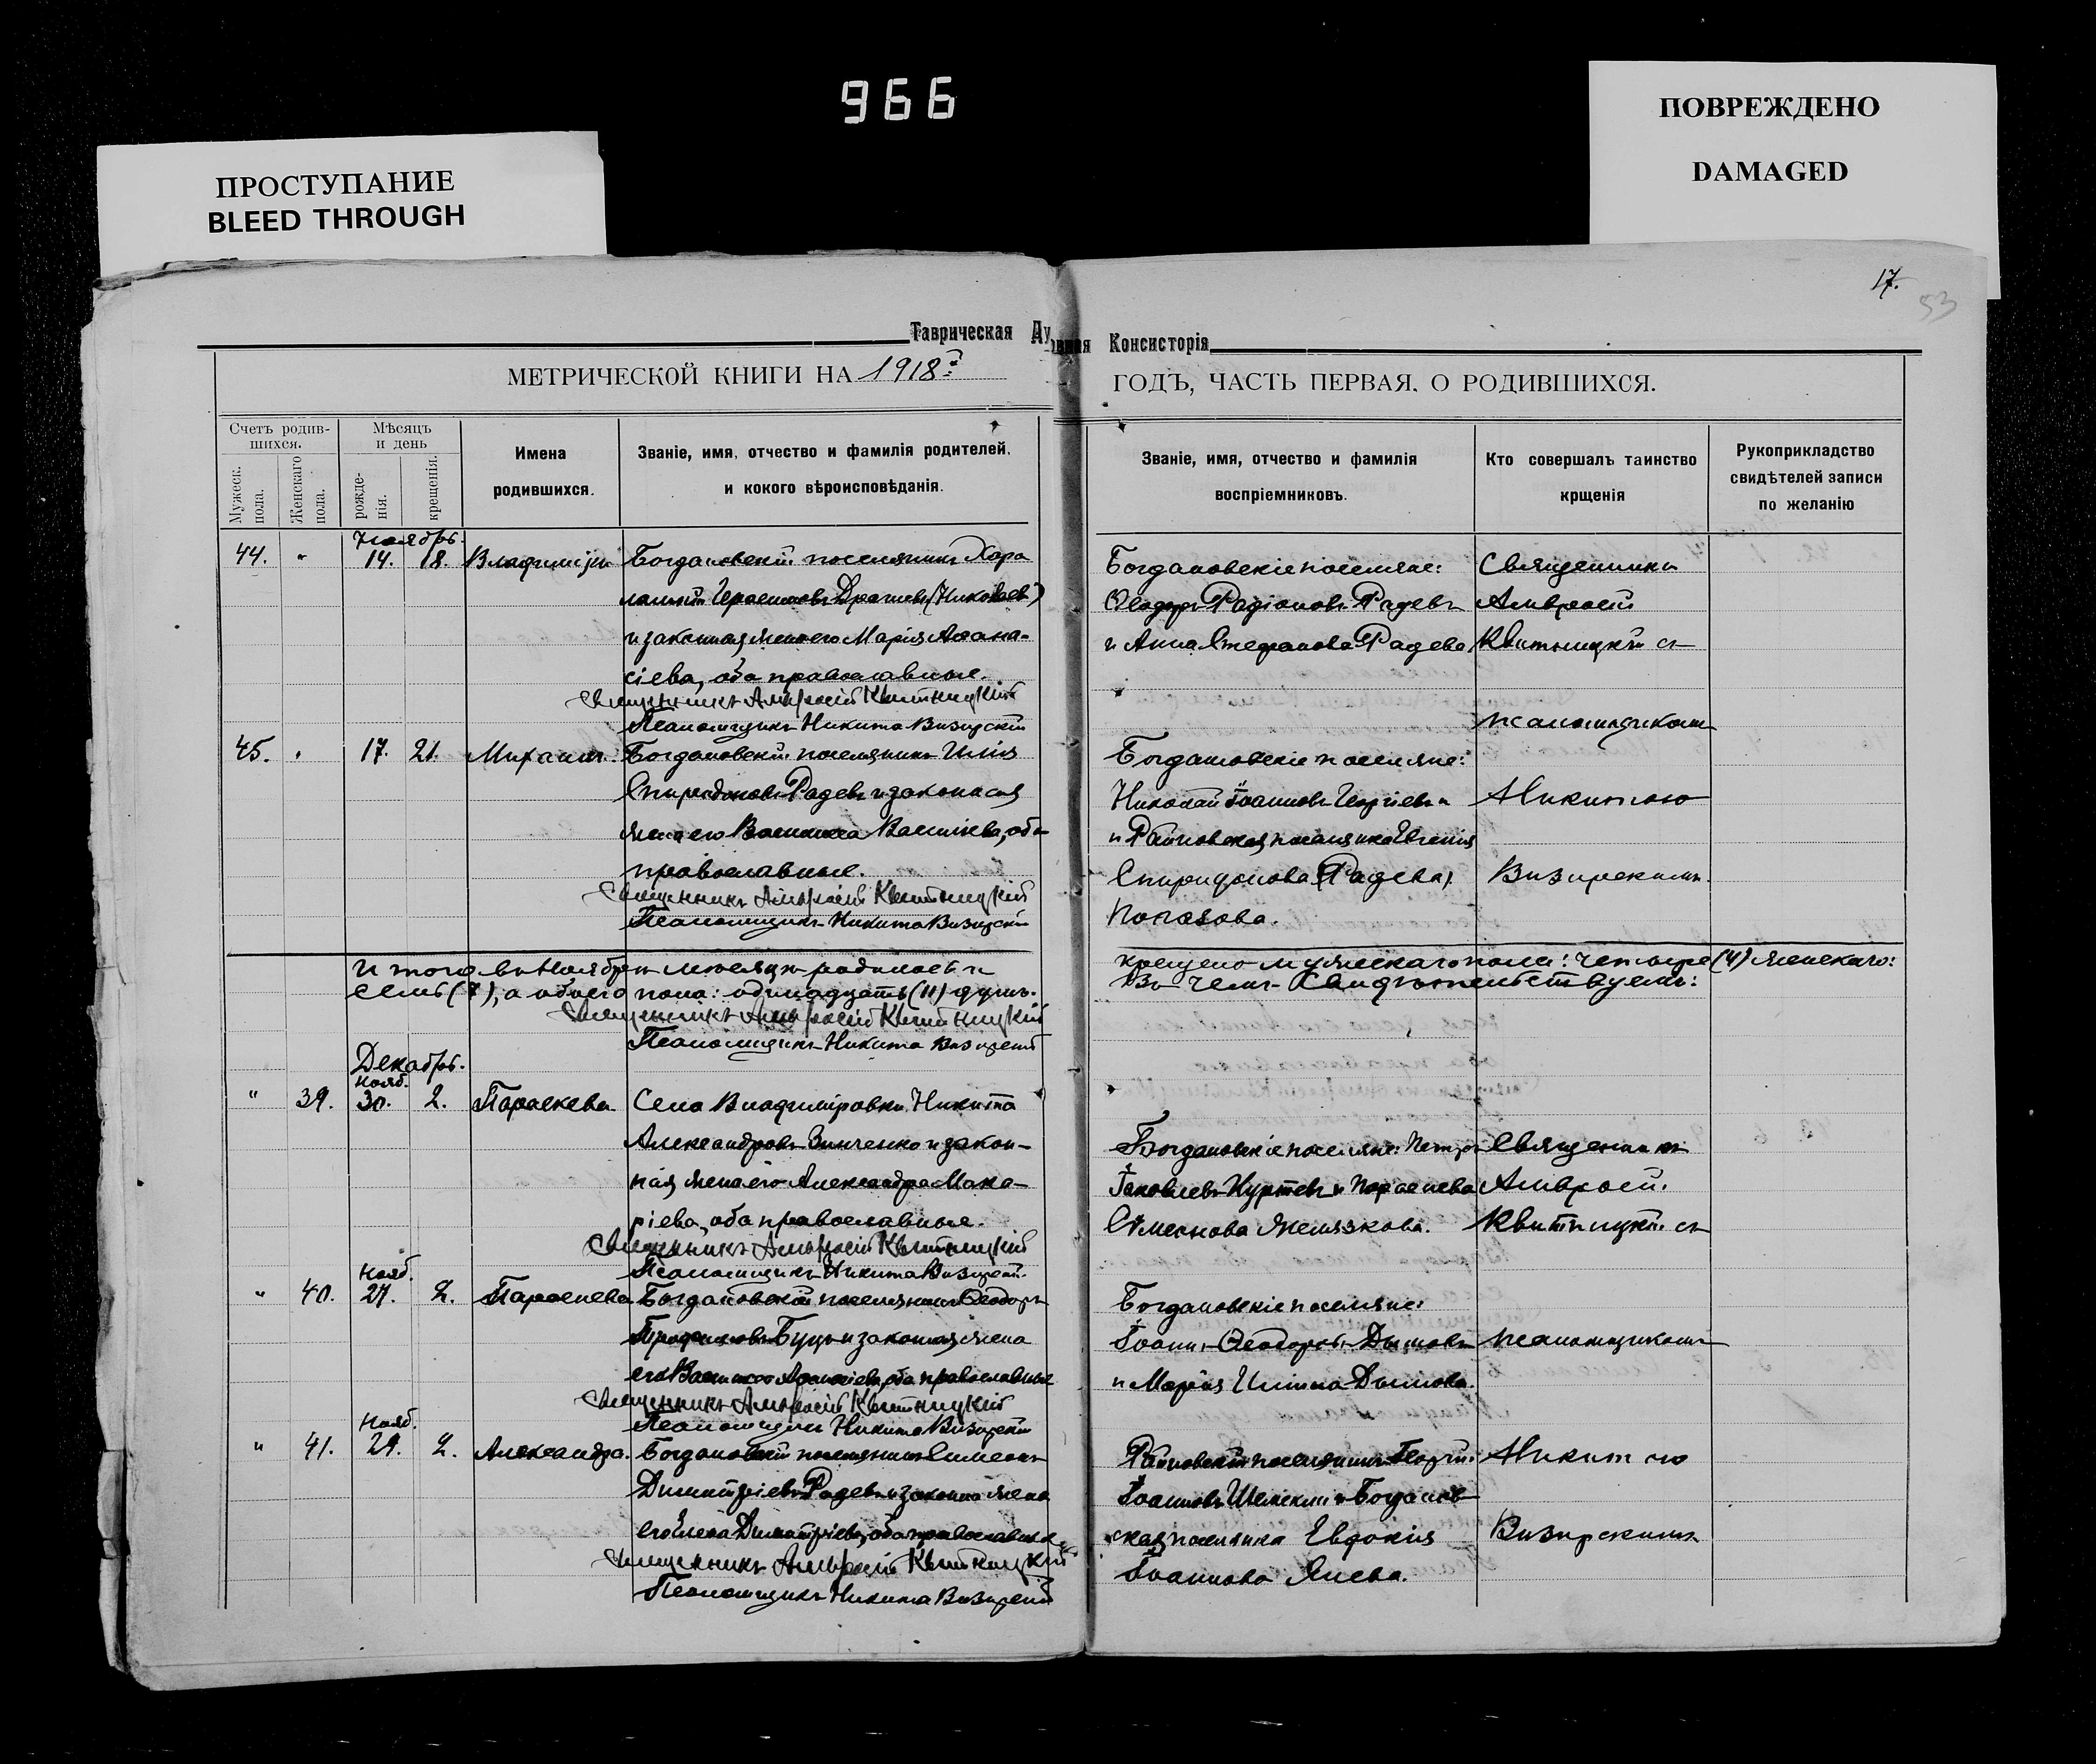 966
ПРОСТУПАНИЕ
BLEED THROUGH
ПОВРЕЖДЕНО
DAMAGED
17.
53
Таврическая Ду
овная Консисторія
МЕТРИЧЕСКОЙ КНИГИ НА 1918
ГОДЪ, ЧАСТЬ ПЕРВАЯ, О РОДИВШИХСЯ.
Счетъ родив-
шихся.
Мужеск. пола.
Женскаго пола.
Мѣсяцъ
и день
рожде-
нія.
крещенія.
Имена
родившихся.
Званіе, имя, отчество и фамилія родителей,
и кокого вѣроисповѣданія.
Званіе, имя, отчество и фамилія
воспріемниковъ.
Кто совершалъ таинство
крщенія
Рукоприкладство
свидѣтелей записи
по желанію
Ноябрь.
44. " 14. 18. Владиміръ Богдановскій поселянинъ Хара
лампій Герасимовъ Драгиевъ (Николаев)
и законная жена его Марія Аѳана-
сіева, оба православные.
Священникъ Амвросій Квитницкій
Псаломщикъ Никита Визирскій
Богдановскіе поселяне:
Ѳеодоръ Радіоновъ Радевъ
и Анна Стефанова Радева
Священникъ
Амвросій
Квитницкій съ
псаломщикомъ
45. " 17. 21. Михаилъ. Богдановскій поселянинъ Илія
Спиридоновъ Радевъ и законная
жена его Василиса Василіева, оба
православные.
Священникъ Амвросій Квитницкій
Псаломщикъ Никита Визирскій
Богдановскіе поселяне:
Николай Іоанновъ Георгіевъ
и Райновская поселянка Евгенія
Спиридонова (Радева)
Попазова.
Никитою
Визирскимъ.
Итого въ Ноябрѣ мѣсяцѣ родилось и
крещено мужескаго пола: четыре (4) женскаго:
семь (7), а обоего пола: одинадцать (11) душъ.
Въ чемъ Свидѣтельствуемъ:
Священникъ Амвросій Квитницкій
Псаломщикъ Никита Визирскій
Декабрь.
нояб.
" 39. 30. 2. Параскева Села Владиміровки Никита
Александровъ Зинченко и закон-
ная жена его Александра Мака-
ріева, оба православные.
Священникъ Амвросій Квитницкій
Псаломщикъ Никита Визирскій.
Богдановскіе поселяне: Петръ
Іаковлевъ Куртевъ и Параскева
Симеонова Желязкова.
Священникъ
Амвросій.
Квитницкій съ
нояб.
" 40. 27. 2. Параскева Богдановскій поселянинъ Ѳеодоръ
и законная жена
его Василиса оба православные
Священникъ Амвросій Квитницкій
Псаломщикъ Никита Визирскій
Богдановскіе поселяне:
Іоаннъ Ѳеодоровъ Дымовъ
и Марія Иліина Дымова.
псаломщикомъ
нояб.
" 41. 29. 2. Александра. Богдановскій поселянинъ Симеонъ
Димитріевъ Радевъ и законна жена
его Елена Димитріева, оба православные.
Священникъ Амвросій Квитницкій
Псаломщикъ Никита Визирскій
Райновскій поселянинъ Георгій
Іоанновъ и Богданов
ская поселянка Евдокія
Іоаннова Янева.
Никитою
Визирскимъ